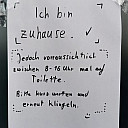 Ich bin
zuhause. ✓
Jedoch vorraussichtlich
zwischen 8-16 Uhr mal auf
Toilette.
Bitte kurz warten und
erneut klingeln.